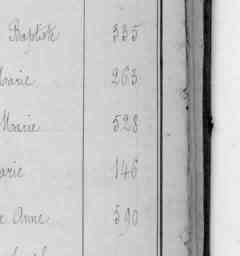 Baptiste 335
Marie 263
Marie 528
arie 146
e Anne 590